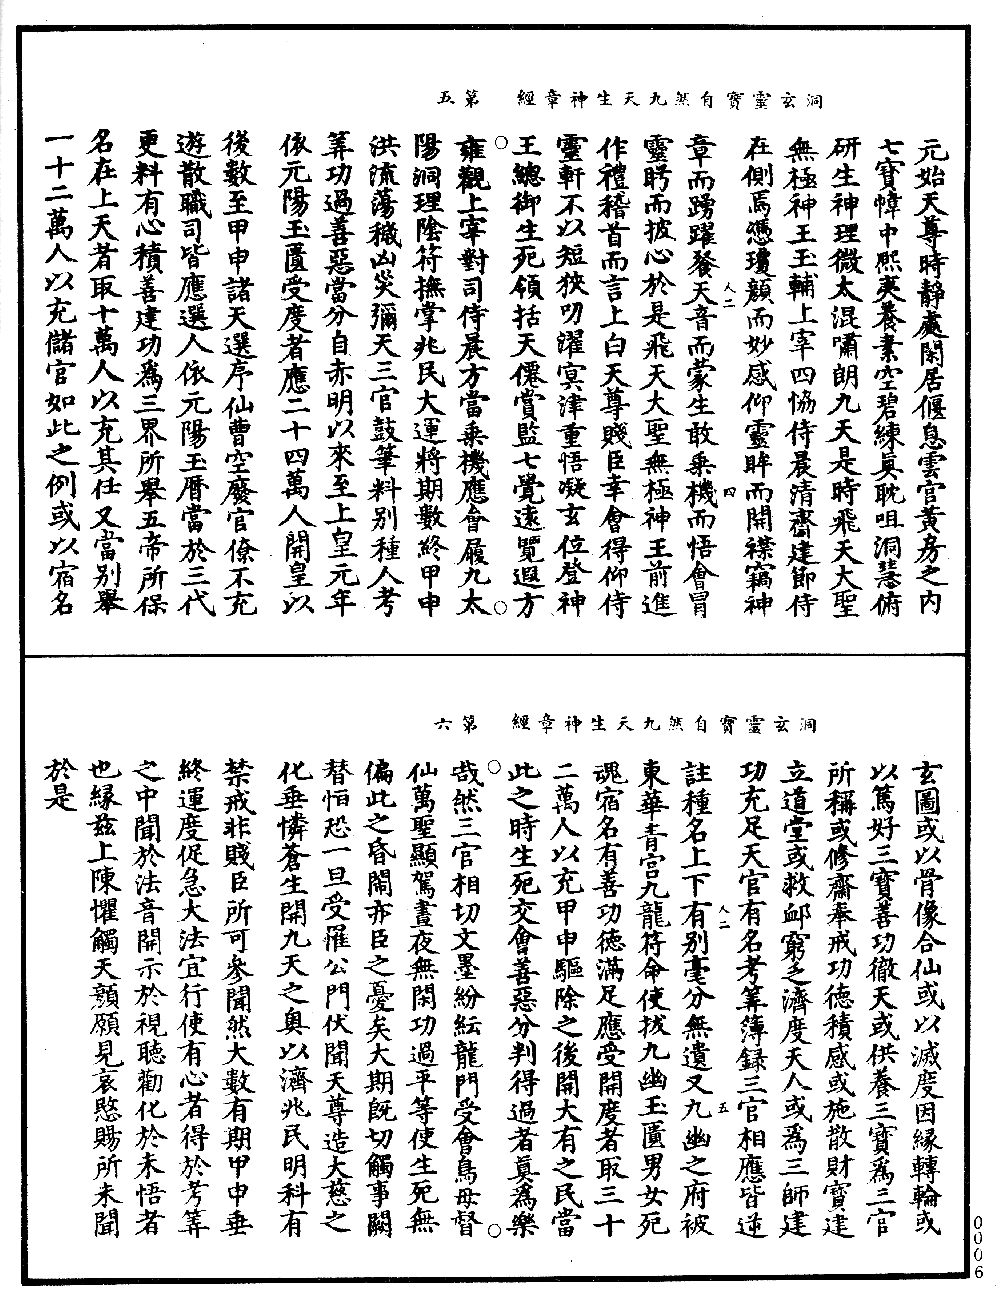 洞玄靈寶自然九天生神章經　第五
元始天尊時靜處閑居偃息雲宮黃房之內
七寶幃中熙爽養素空碧練眞耽咀洞慧俯
研生神理微太混嘯朗九天是時飛天大聖
無極神王玉輔上宰四協侍晨清齋建節侍
在側焉慿瓊顏而妙感仰靈眸而開襟竊神
章而踴躍發天音而蒙生敢乗機而悟會冒
靈眄而披心於是飛天大聖無極神王前進
作禮稽首而言上白天尊賤臣幸會得仰侍
靈軒不以短狹叨濯㝠津重悟凝玄位登神
王總御生死領括天僊賞監七覺遠覽遐方
雍觀上宰對司侍晨方當乗機應會履九太
陽洞理陰符撫掌兆民大運將期數終甲申
洪流蕩穢凶災彌天三官鼓筆料别種人考
筭功過善惡當分自赤明以來至上皇元年
依元陽玉匱受度者應二十四萬人開皇以
後數至甲申諸天選序仙曹空廢官僚不充
遊散職司皆應選人依元陽玉曆當於三代
更料有心積善建功爲三界所舉五帝所保
名在上天者取十萬人以充其任又當别舉
一十二萬人以充儲官如此之例或以宿名
人二　四
洞玄靈寶自然九天生神章經　第六
玄圖或以骨像合仙或以滅度因緣轉輪或
以篤好三寶善功徹天或供養三寶爲三官
所稱或修齋奉戒功德積感或施散財寶建
立道堂或救卹窮乏濟度天人或爲三師建
功充足天官有名考筭簿録三官相應皆逆
註種名上下有别毫分無遺又九幽之府被
東華青宮九龍符命使拔九幽玉匱男女死
魂宿名有善功德滿足應受開度者取三十
二萬人以充甲申驅除之後開大有之民當
此之時生死交會善惡分判得過者眞爲樂
哉然三官相切文墨紛紜龍門受會鳥母督
仙萬聖顯駕晝夜無閑功過平等使生死無
偏此之昏閙亦臣之憂矣大期既切觸事闕
替恒恐一旦受罹公門伏聞天尊造大慈之
化垂憐蒼生開九天之奥以濟兆民明科有
禁戒非賤臣所可參聞然大數有期甲申垂
終運度促急大法宜行使有心者得於考筭
之中聞於法音開示於視聽勸化於未悟者
也緣兹上陳懼觸天顏願見哀愍賜所未聞
於是
人二　五
0006